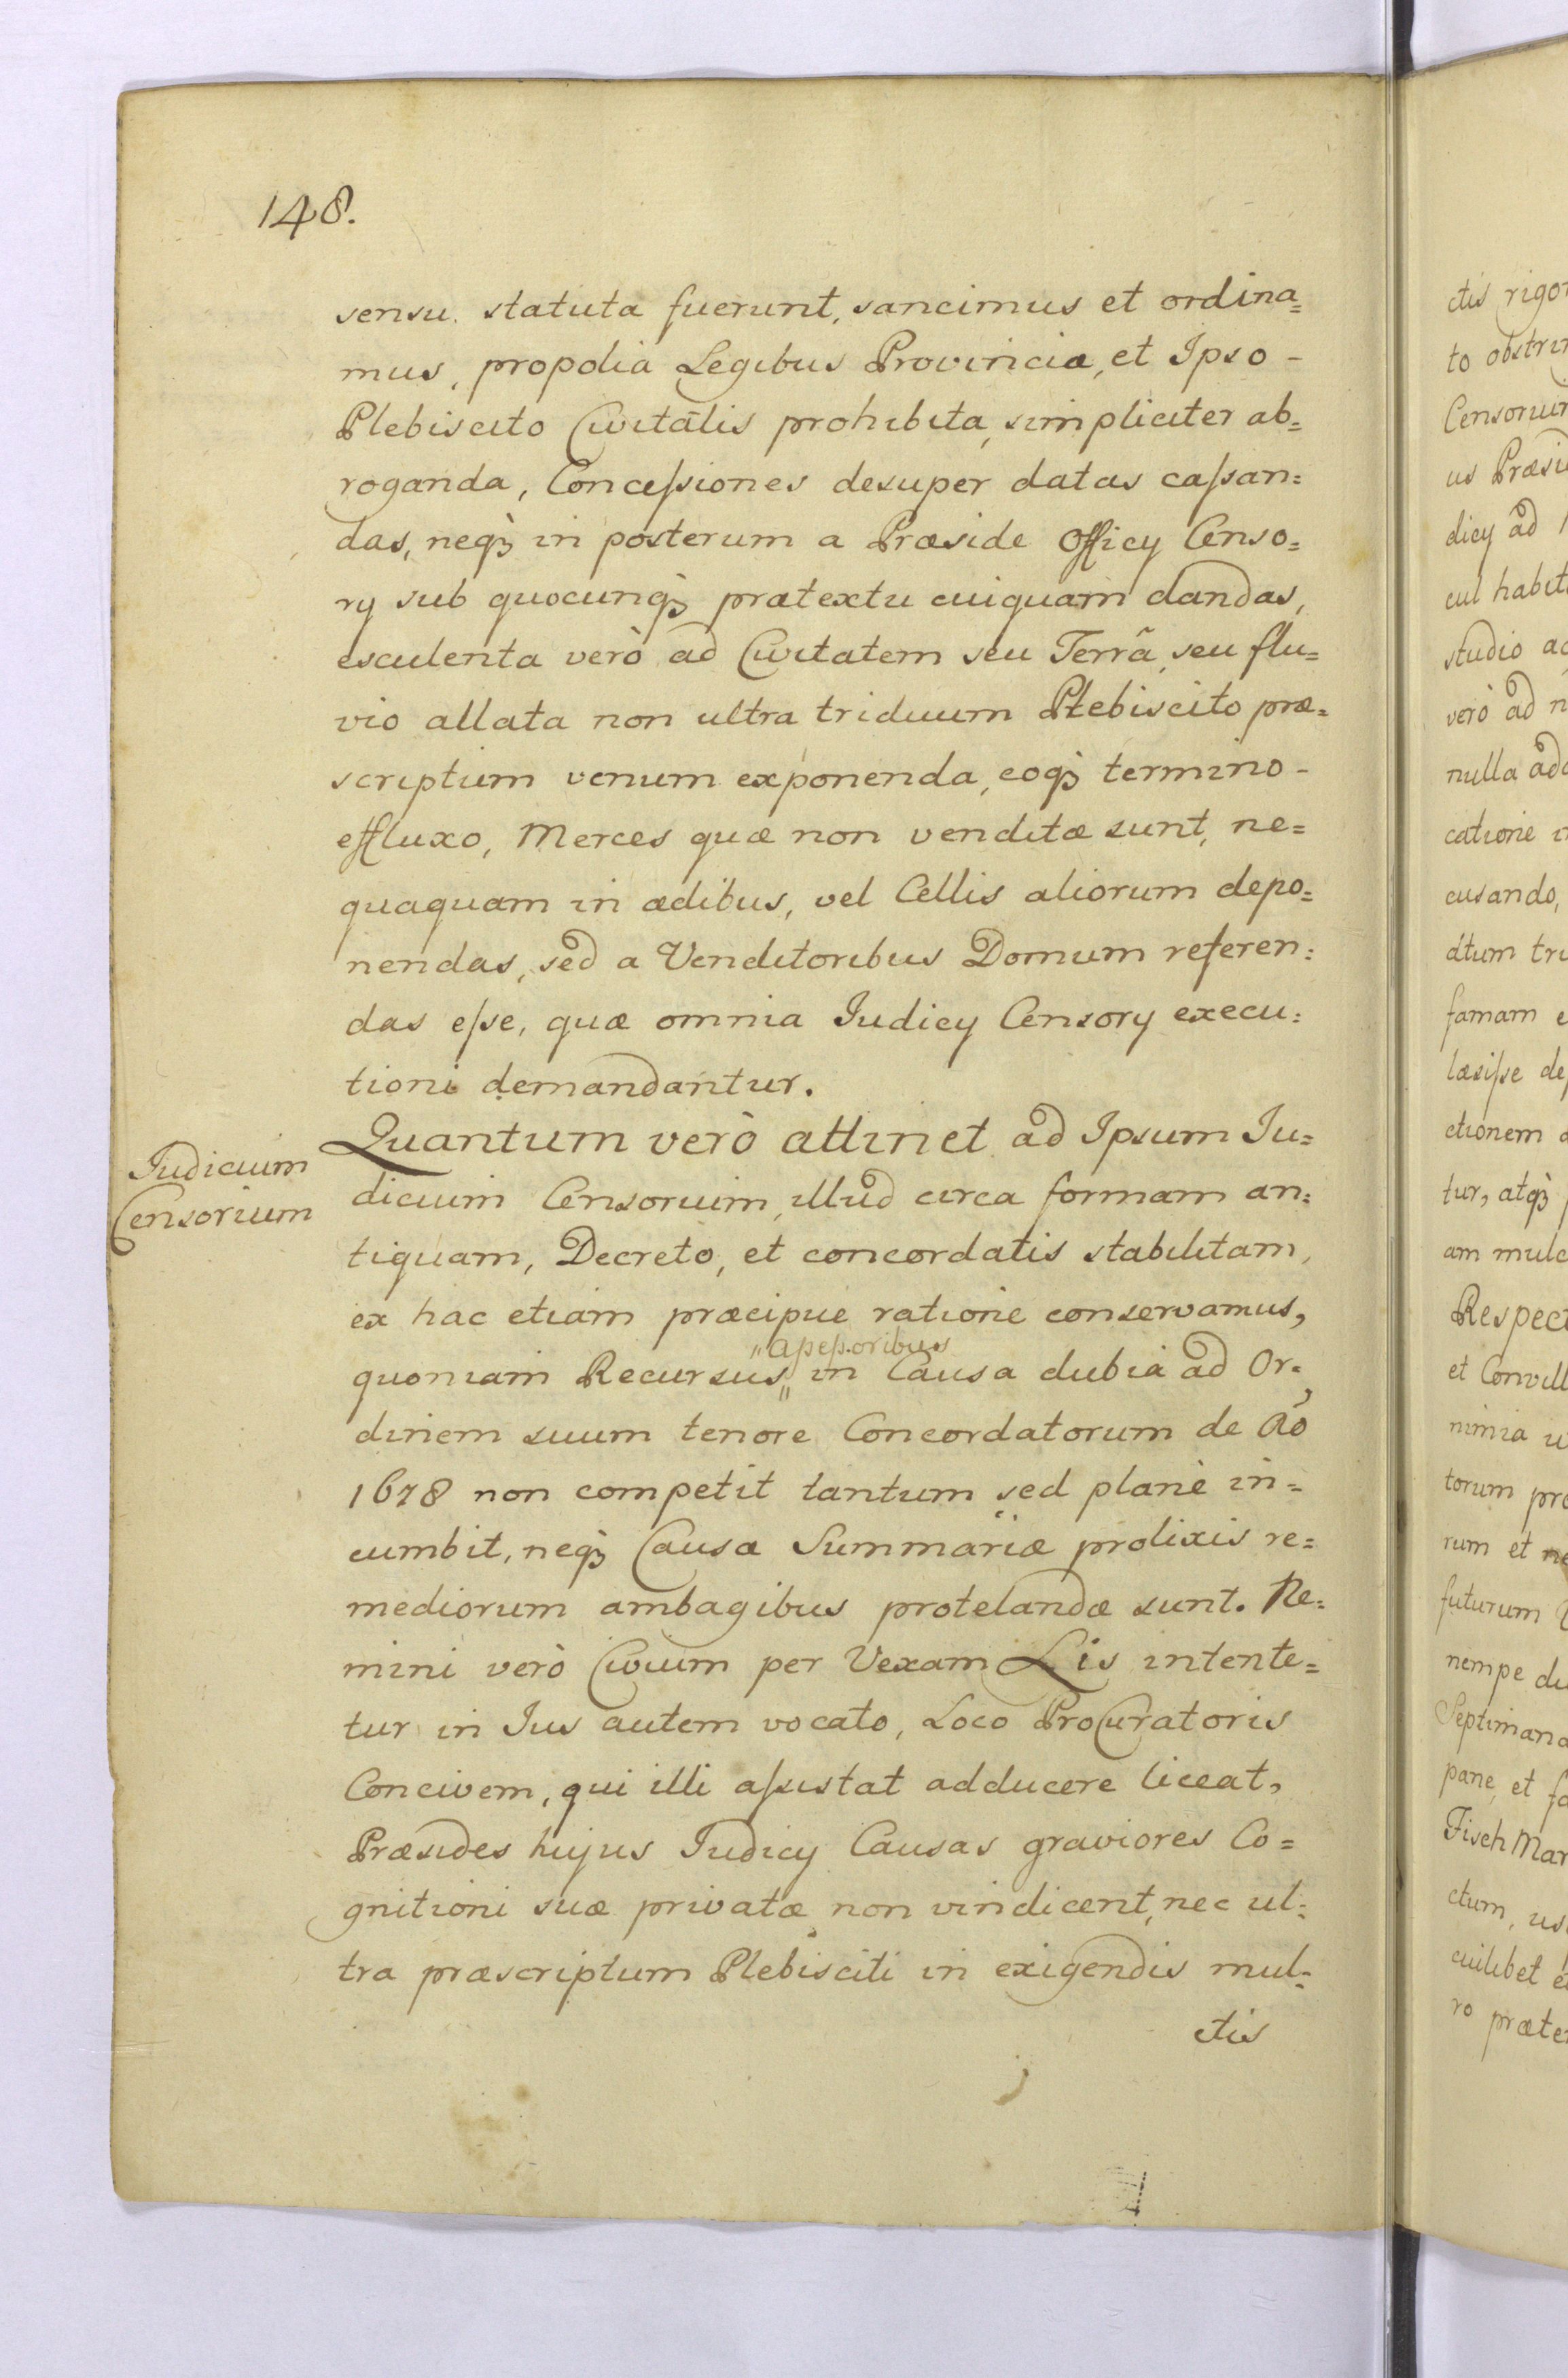 148.
sensu statuta fuerunt, sancimus et ordina=
mus, propolia Legibus Provinciæ, et Ipso -
Plebiscito Civitãlis prohibita, simpliciter ab=
roganda, Conceſsiones desuper datas caſsan=
das, neqꝫ in posterum a Præside Officy Censo=
ry sub quocunqꝫ prætextu cuiquam dandas,
esculenta verò ad Civitatem seu Terrã, seu flu=
vio allata non ultra triduum Plebiscito præ=
scriptum venum exponenda, eoqꝫ termino -
effluxo, Merces quæ non venditæ sunt, ne=
quaquam in ædibus, vel Cellis aliorum depo=
nendas, sed a Venditoribus Domum referen=
das eſse, quæ omnia Iudicy Censory execu=
tioni demandantur.
Iudicium
Censorium
Quantum verò attinet ad Ipsum Iu=
dicium Censorium, illud circa formam an=
tiquam, Decreto, et concordatis stabilitam,
ex hac etiam præcipue ratione conservamus,
quoniam Recursus in Causa dubia ad Or=
dinem suum tenore Concordatorum de Aõ
1678 non competit tantum sed planè in=
cumbit, neqꝫ Causæ Summariæ prolixis re=
mediorum ambagibus protelandæ sunt. Ne=
mini verò Civium per Vexam Lis intente=
tur in Ius autem vocato, Loco Procuratoris
Concivem, qui illi aſsistat adducere liceat,
Præsides hujus Iudicy Causas graviores Co=
gnitioni suæ privatæ non vindicent, nec ul=
tra præscriptum Plebisciti in exigendis mul=
ctis
ctis
Censorium
us
dicy ad
studio
verò ad
nulla
catione
cusando,
famam
læsiſse
ctionem
tur, atqꝫ
am
et
torum
rum et
futurum
nempe
pane, et
Fisch
ctum,
cuilibet
ro